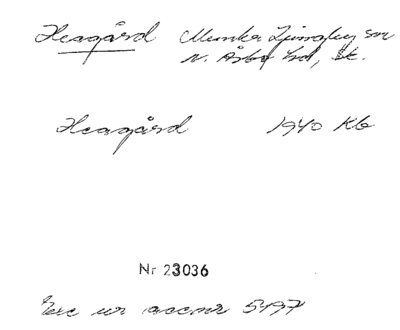 Heagård Munka Ljungby sn
N. Åsbo hd, Sk.
Heagård 1940 Kb
Nr 23036
Exc ur accnr 5497